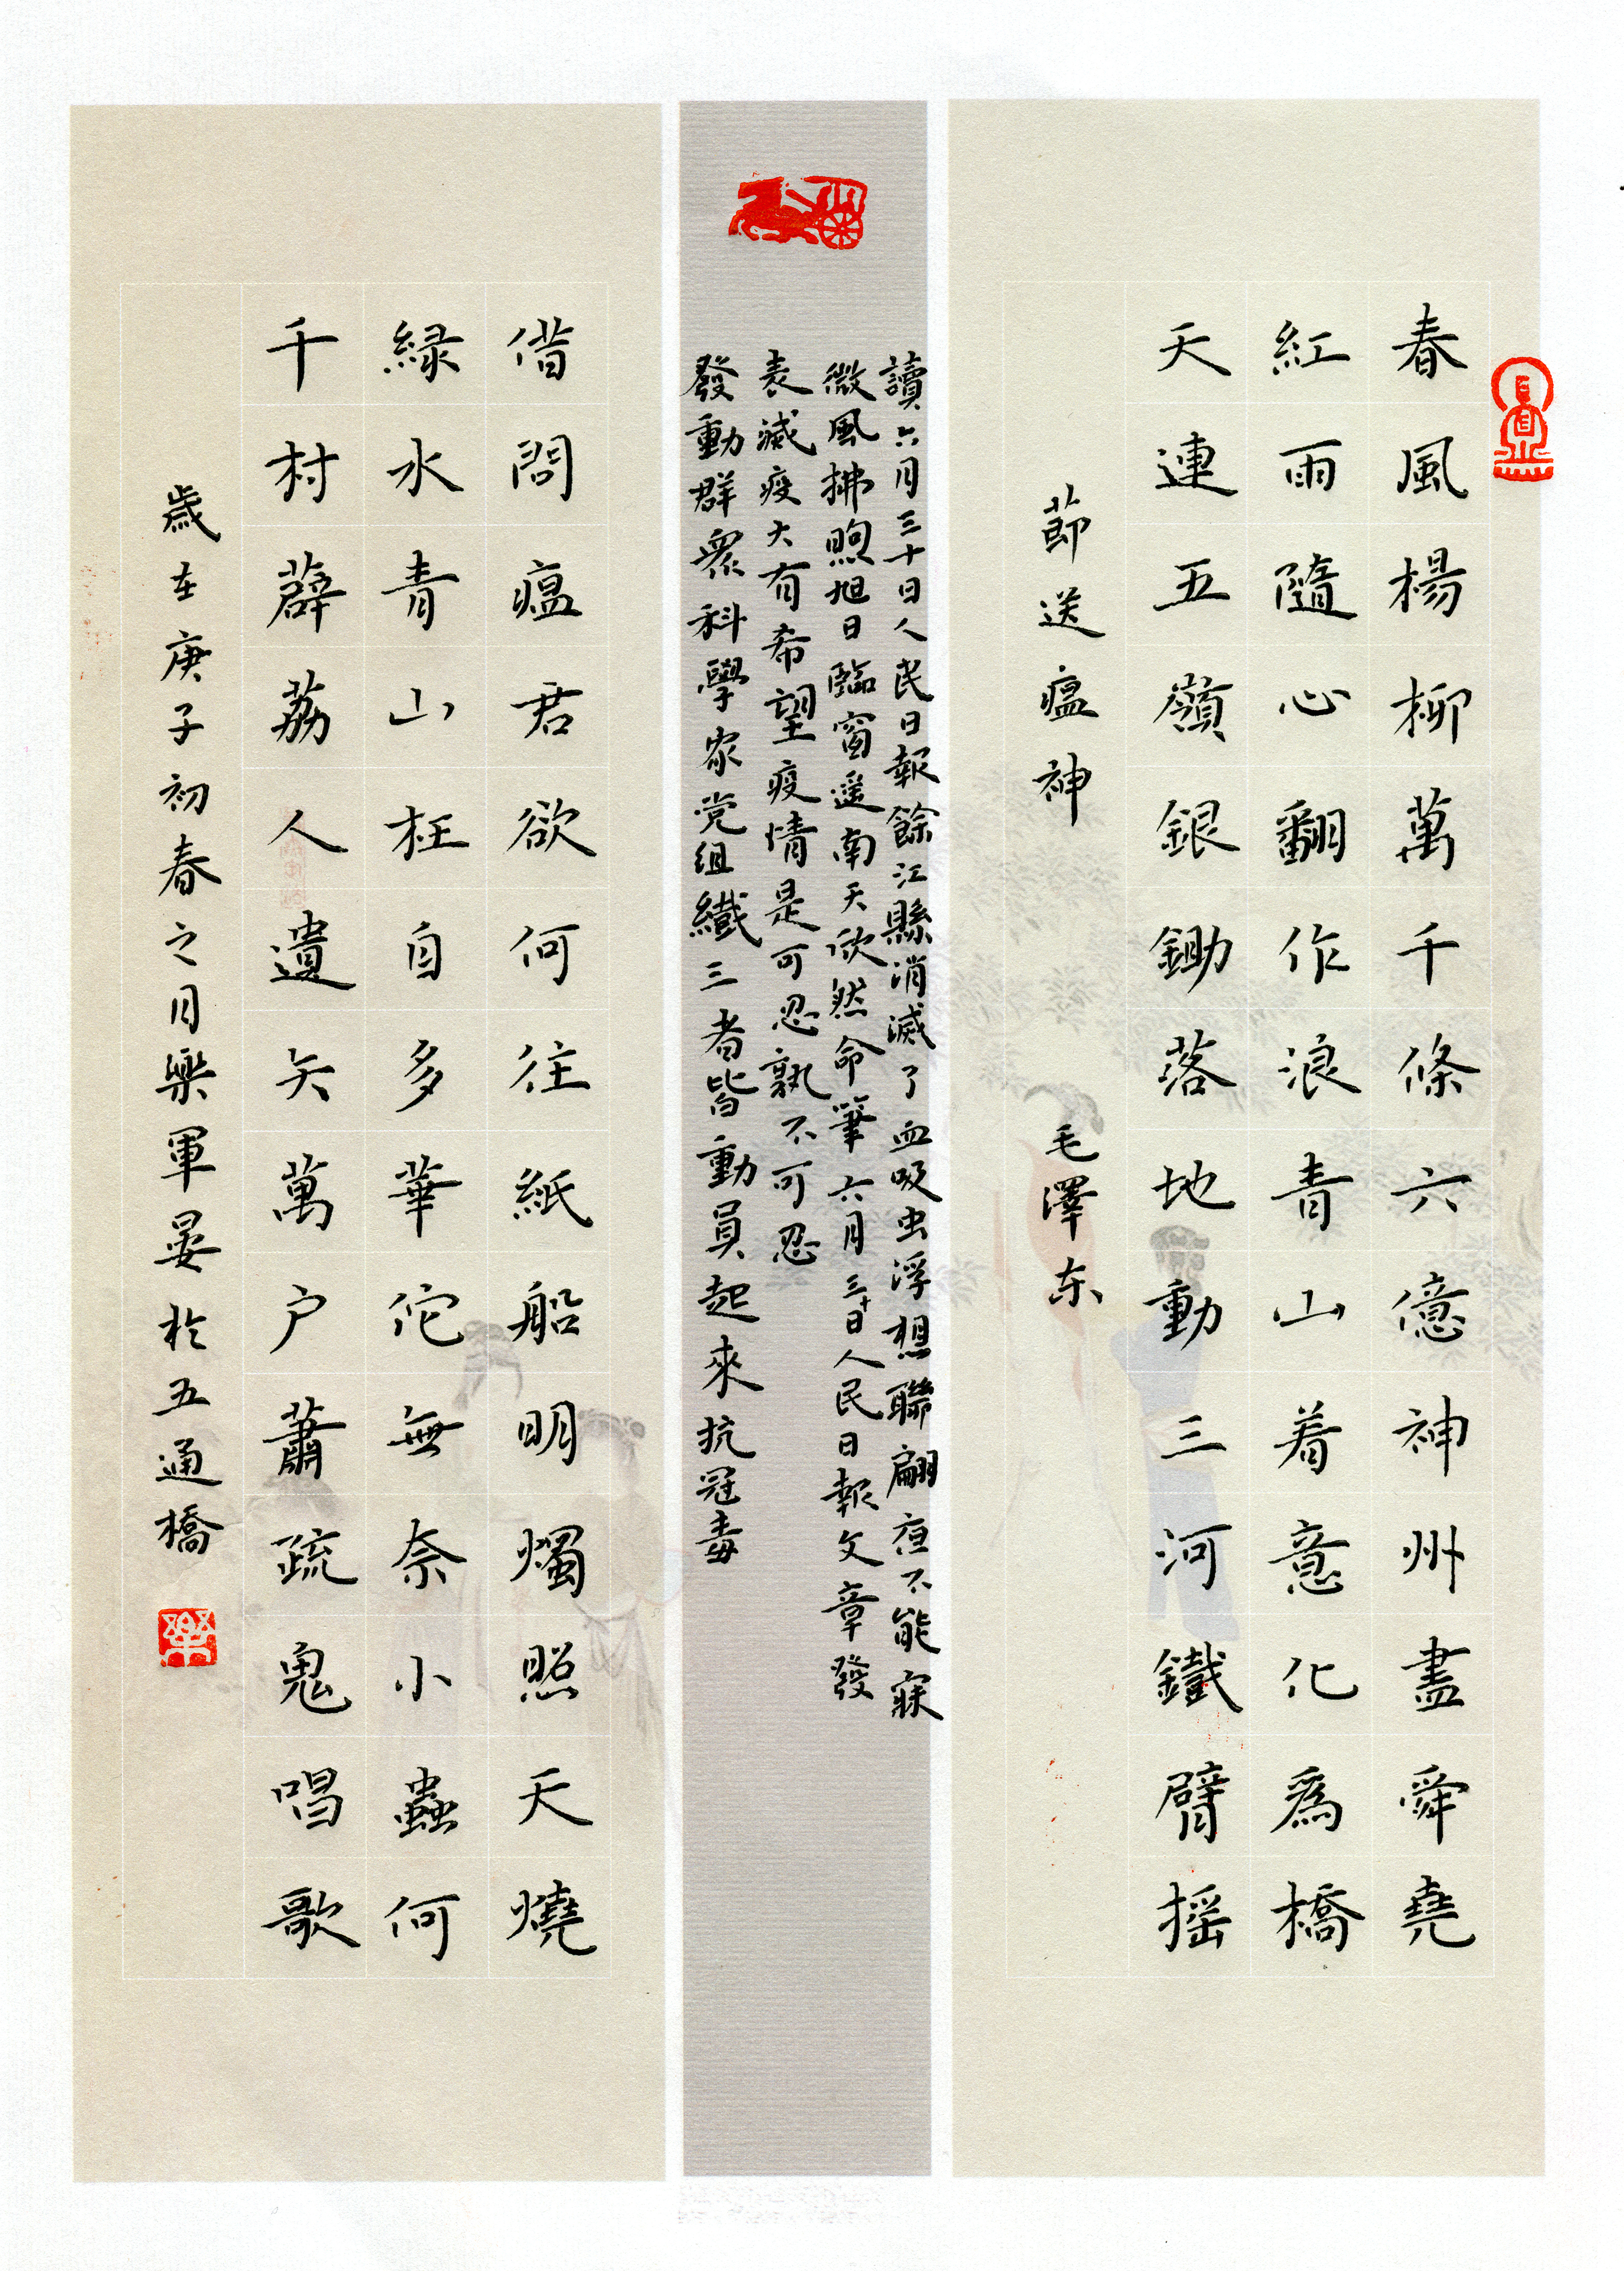 春風楊柳萬千條六億神州盡舜堯
紅雨隨心翻作浪青山着意化為橋
天連五嶺銀鋤落地動三河鐵臂摇
節送瘟神 毛澤东
讀六月三十日人民日報餘江縣消滅了血吸虫浮想聯翩夜不能寐
微風拂煦旭日臨窗遥南天欣然命筆六月三十日人民日報文章發
表滅疫大有希望疫情是可忍孰不可忍
發動群衆科學家党组織三者皆動員起來抗冠毒
借問瘟君欲何往紙船明燭照天燒
緑水青山枉自多華佗無奈小蟲何
千村薜荔人遺矢萬户蕭疏鬼唱歌
歲在庚子初春之月樂軍晏於五通橋
樂